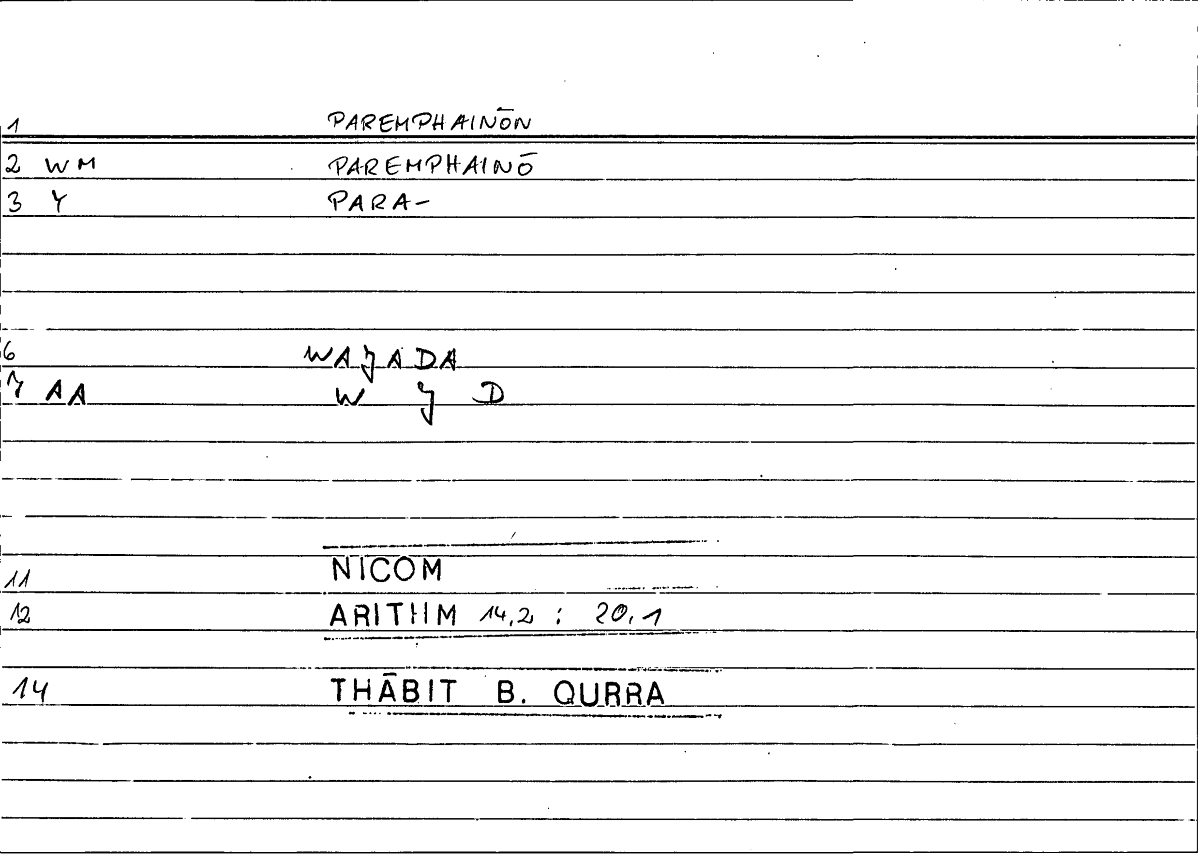 1 PAREMPHAINŌN
2 WM PAREMPHAINŌ
3 Y PARA-
6 WAJADA
7 AA W J D
11 NICOM
12 ARITHM 14,2 : 20,1
14 THĀBIT B. QURRA